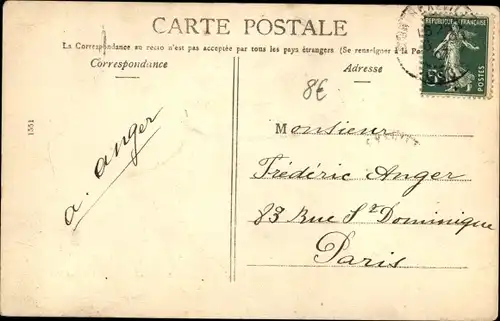 CARTE POSTALE
La Correspondance au recto n'est pas acceptée par tous les pays étrangers (Se renseigner à la Po
Correspondance
Adresse
REPUBLIQUE FRANÇAISE
POSTES
8€
1551
a. Anger
Monsieur
Frédéric Anger
83 Rue St Dominique
Paris